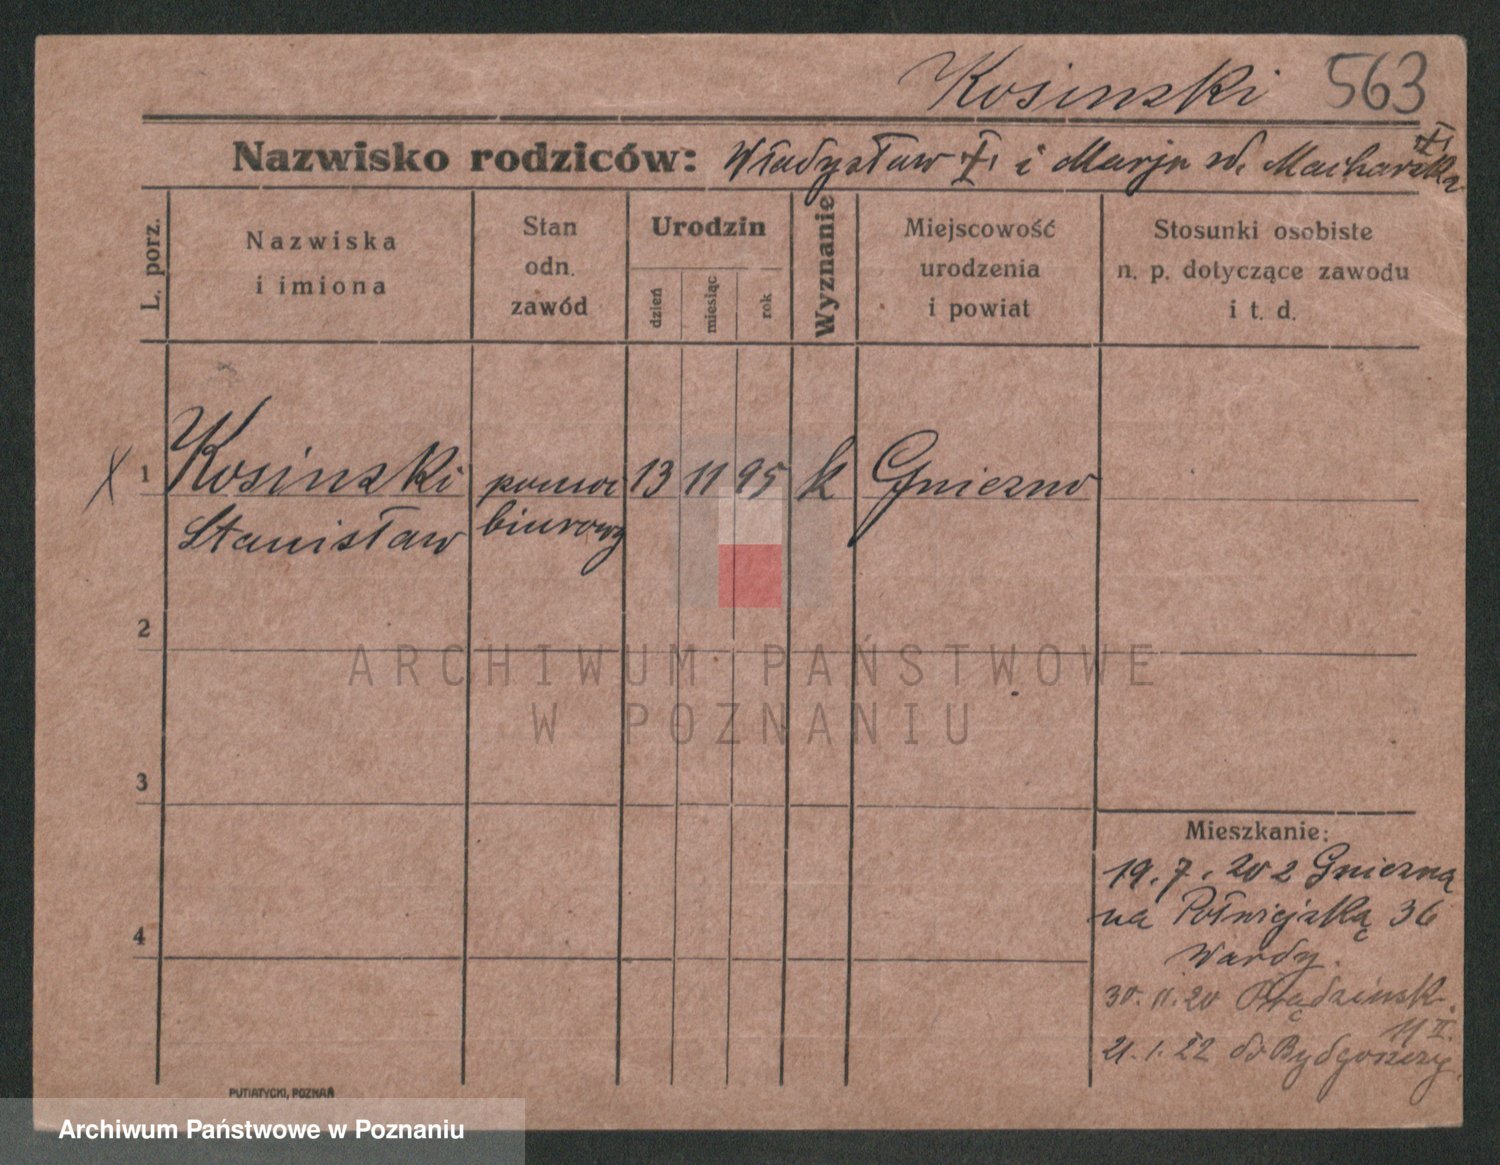 Kosinski 563
Nazwisko rodziców: Władysław †, i Marja
L. porz.
Nazwiska
i imiona
Stan
odn.
zawód
Urodzin
dzień
miesiąc
rok
Wyznanie
Miejscowość
urodzenia
i powiat
Stosunki osobiste
n. p. dotyczące zawodu
i t. d.
X 1 Kosinski pomoc 13 11 95 k Gniezno
Stanisław biurowy
2
ARCHIWUM PAŃSTWOWE
W POZNANIU
3
Mieszkanie:
19.7.20 z Gniezna
na Półwiejską 36
Wardy.
4
30.11.20
11 II.
21.1.22 do Bydgoszczy
PUTIATYCKI, POZNAŃ
Archiwum Państwowe w Poznaniu